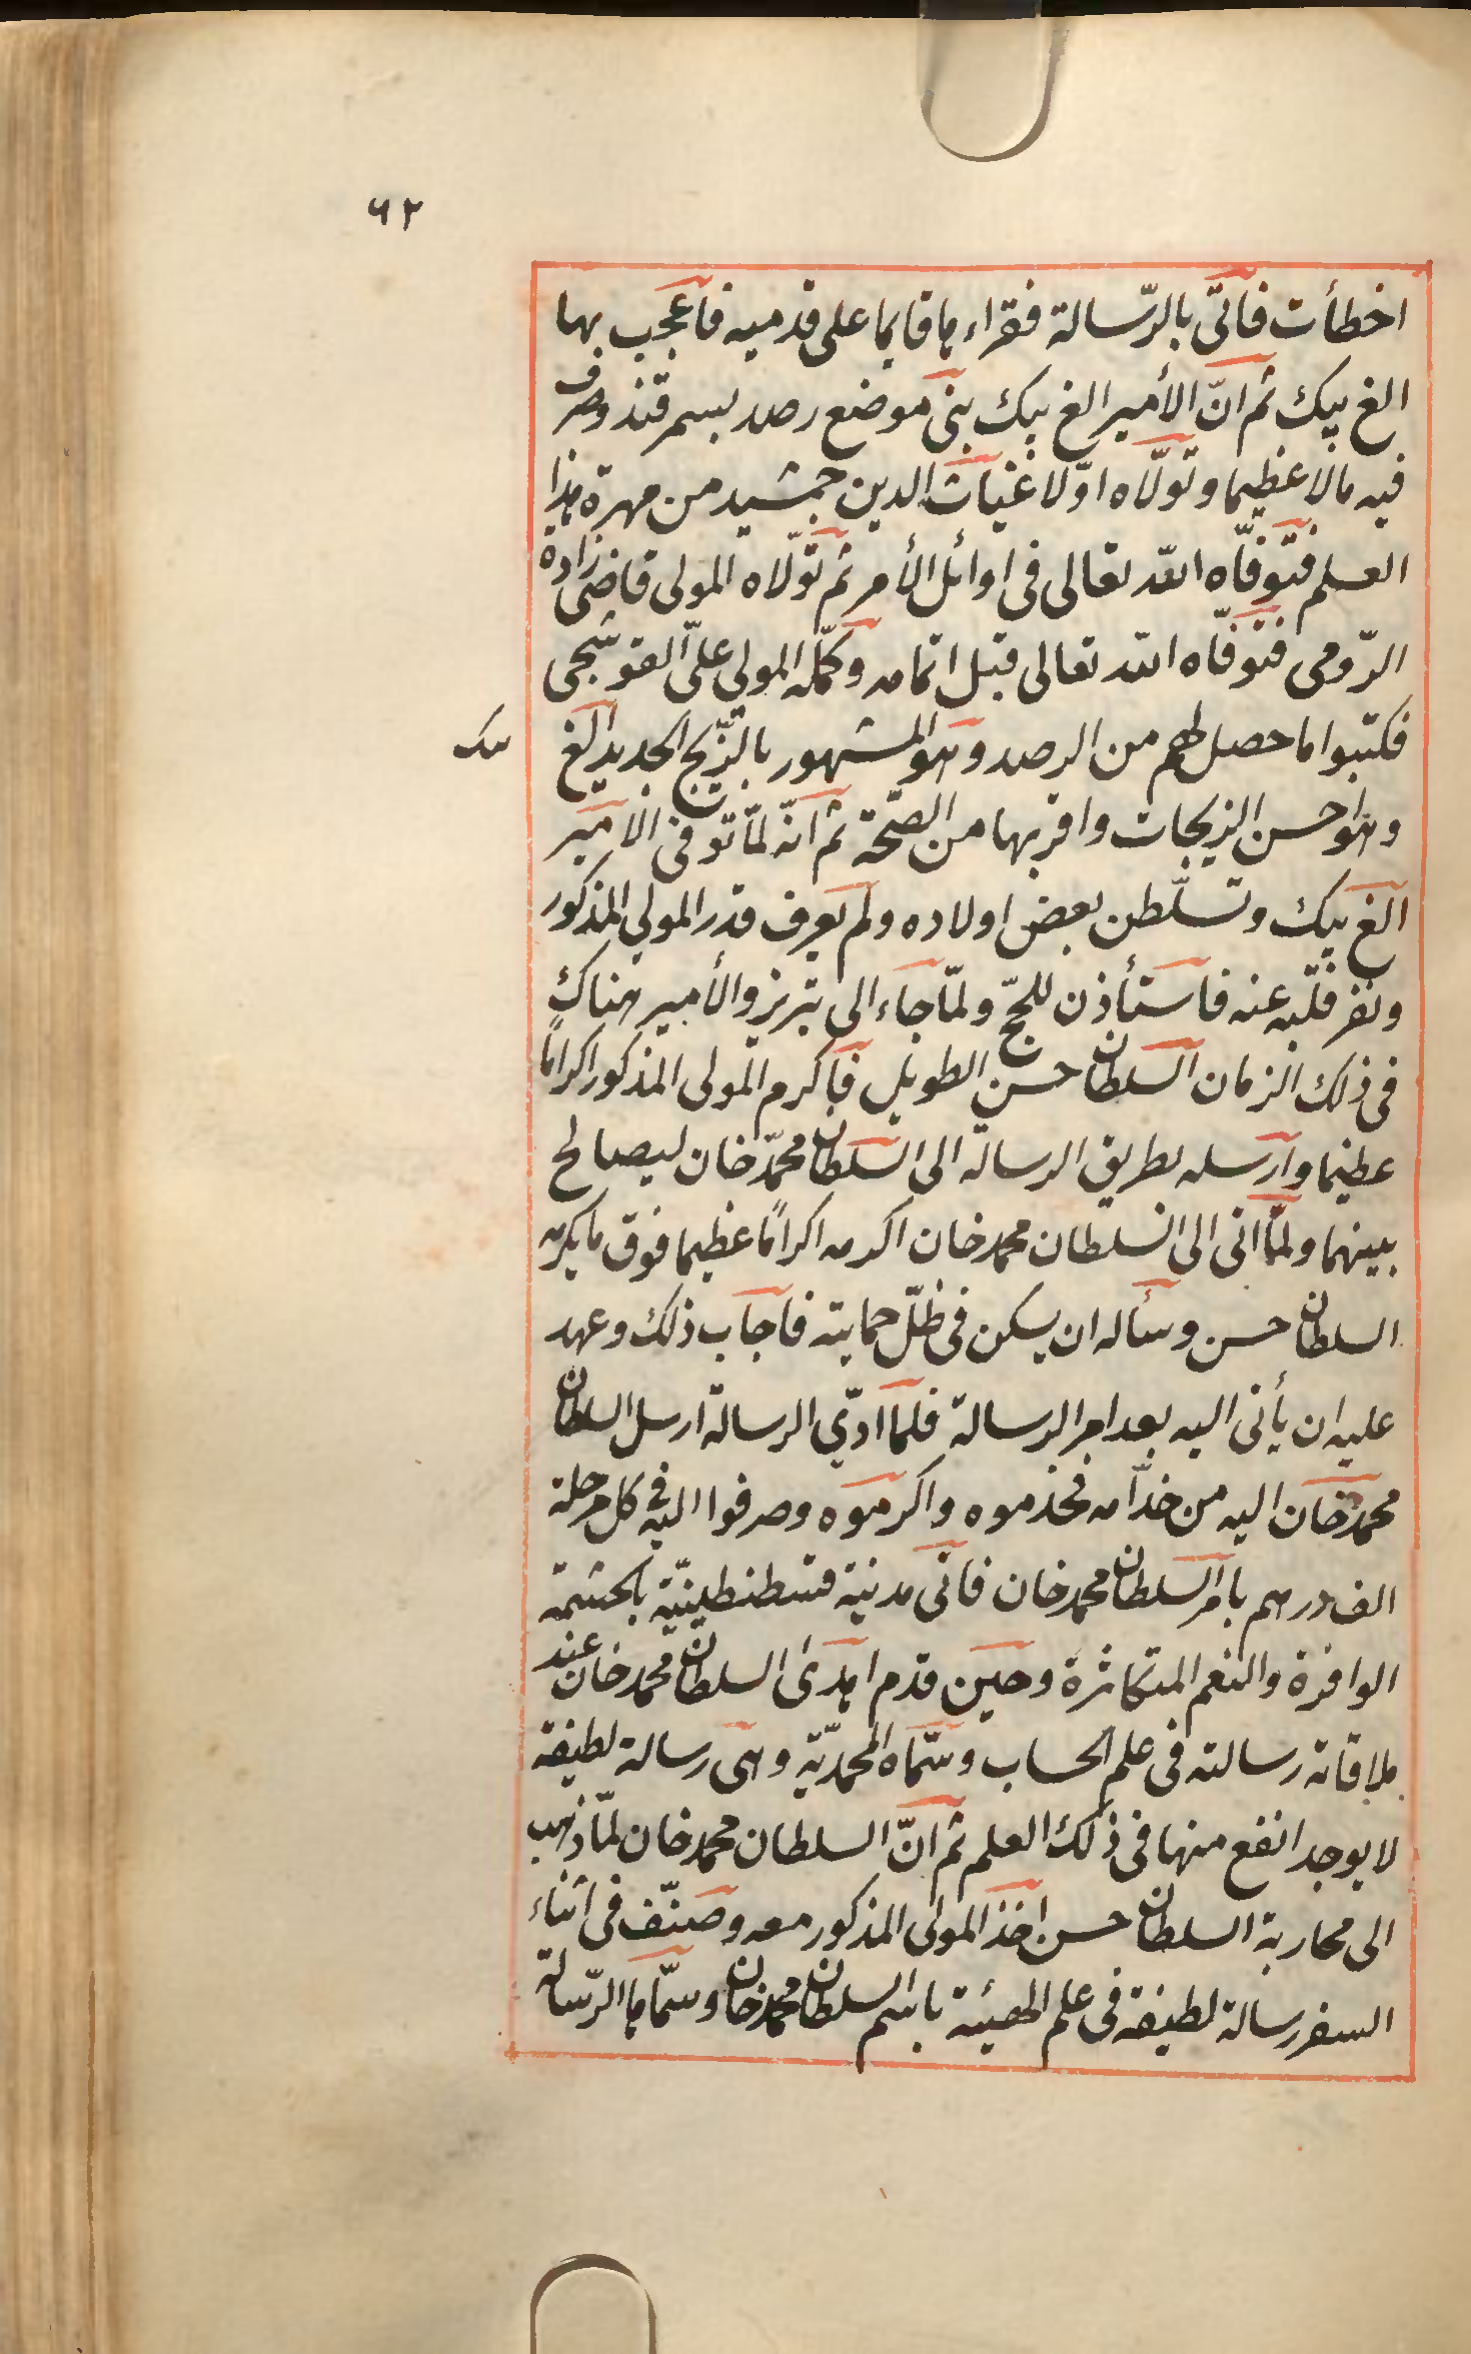 ٦٢
اخطأت فاتى بالرّسالة فقراءها قايما على قدميه فاعجب بها
الغ بيك ثم انّ الأمير الغ بيك بنى موضع رصد بسمرقند وصرف
فيه مالا عظيما وتولّاه اوّلا غياث الدين جمشيد من مهرة هذا
العلم فتوفّاه الله تعالى فى اوائل الأمر ثم تولّاه المولى قاضى زاده
الرّومى فتوفّاه الله تعالى قبل اتمامه وكمّله المولى على القوشجى
فكتبوا ما حصل لهم من الرصد وهو المشهور بالزّيج الجديد الغ
بيك
وهو احسن الزيجات واقربها من الصّحة ثم انّه لمّا توفى الامير
الغ بيك وتسلّطن بعض اولاده ولم يعرف قدر المولى المذكور
ونفر قلبه عنه فاستأذن للحجّ ولمّا جاء الى تبريز والأمير هناك
فى ذلك الزمان السلطان حسن الطويل فاكرم المولى المذكور اكرامًا
عظيما وارسله بطريق الرسالة الى السلطان محمّد خان ليصالح
بينهما ولمّا اتى الى السلطان محمد خان اكرمه اكرامًا عظيما فوق ما يكرمه
السلطان حسن وسأله ان يسكن فى ظلّ حمايته فاجاب ذلك وعهد
عليه ان يأتى اليه بعد امر الرسالة فلما ادّى الرسالة ارسل السلطان
محمد خان اليه من خدّامه فخدموه واكرموه وصرفوا اليه فى كل مرحلة
الف درهم بامر السلطان محمد خان فاتى مدنية قسطنطينيّة بالحشمة
الوافرة والنعم المتكاثرة وحين قدم اهدى السلطان محمد خان عند
ملاقاته رسالته فى علم الحساب وسمّاه المحمديّة وهى رسالة لطيفة
لا يوجد انفع منها فى ذلك العلم ثم انّ السلطان محمد خان لمّا ذهب
الى محاربة السلطان حسن اخذ المولى المذكور معه وصنّف فى اثناء
السفر رسالة لطيفة فى علم الهيئة باسم السلطان محمد خان وسمّاها الرّسالة